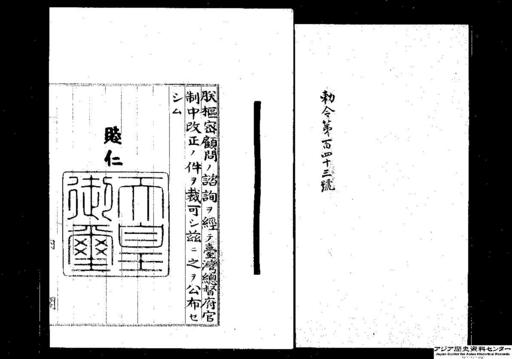 勅令第百四十三號
朕樞密顧問ノ諮詢ヲ經テ臺灣總督府官
制中改正ノ件ヲ裁可シ茲ニ之ヲ公布セ
シム
睦仁
天皇
御璽
アジア歴史資料センター
Japan Center for Asian Historical Records